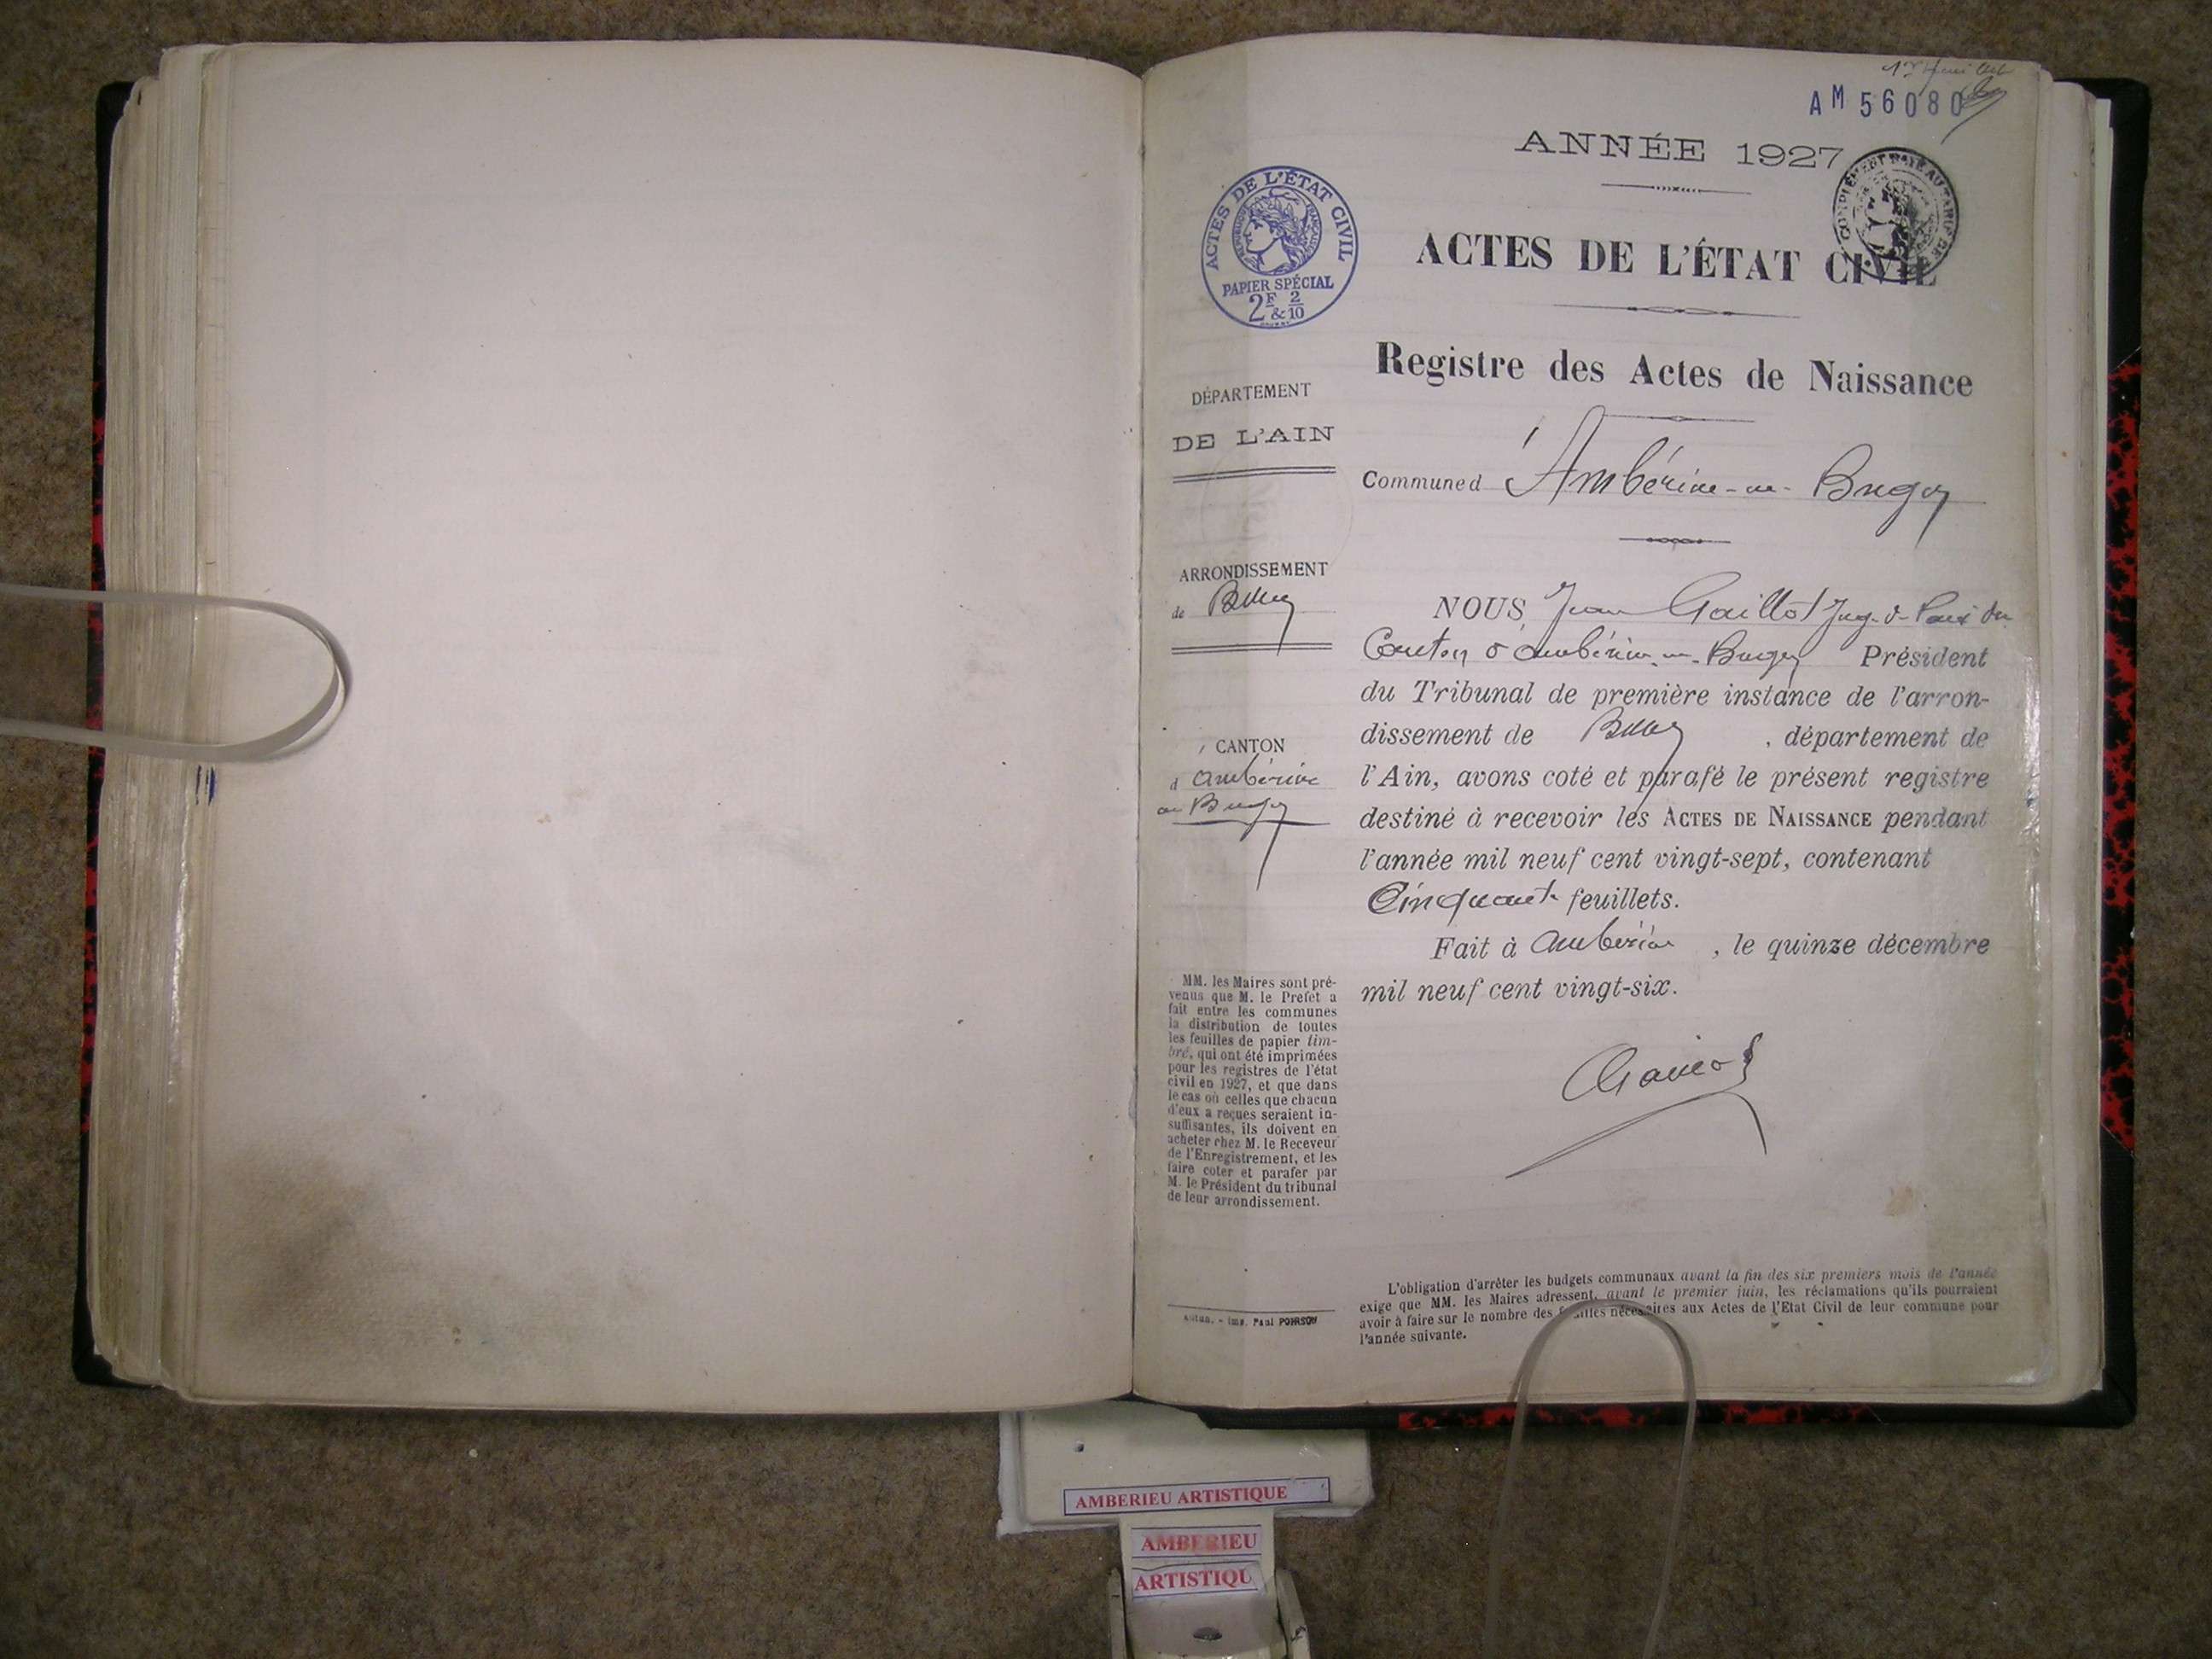 1er feuillet
AM 56080
ANNÉE 1927
ACTES DE L'ÉTAT CIVIL
RÉPUBLIQUE FRANÇAISE
PAPIER SPÉCIAL
2F & 2/10
ACTES DE L'ÉTAT CIVIL
Registre des Actes de Naissance
Commune d'Ambérieu-en-Bugey
DÉPARTEMENT
DE L'AIN
ARRONDISSEMENT
de Belley
CANTON
d'Ambérieu
en Bugey
MM. les Maires sont pré-
venus que M. le Prefet a
fait entre les communes
la distribution de toutes
les feuilles de papier tim-
bré, qui ont été imprimées
pour les registres de l'état
civil en 1927, et que dans
le cas où celles que chacun
d'eux a reçues seraient in-
suffisantes, ils doivent en
acheter chez M. le Receveur
de l'Enregistrement, et les
faire coter et parafer par
M. le Président du tribunal
de leur arrondissement.
Autun. - Imp. Paul POIRSON
NOUS, Jean Gaillot Juge de Paix du
Canton d'Ambérieu-en-Bugey Président
du Tribunal de première instance de l'arron-
dissement de Belley, département de
l'Ain, avons coté et parafé le présent registre
destiné à recevoir les ACTES DE NAISSANCE pendant
l'année mil neuf cent vingt-sept, contenant
Cinquante feuillets.
Fait à Ambérieu, le quinze décembre
mil neuf cent vingt-six.
L'obligation d'arrêter les budgets communaux avant la fin des six premiers mois de l'année
exige que MM. les Maires adressent, avant le premier juin, les réclamations qu'ils pourraient
avoir à faire sur le nombre des feuilles nécessaires aux Actes de l'Etat Civil de leur commune pour
l'année suivante.
AMBERIEU ARTISTIQUE
AMBERIEU
ARTISTIQU